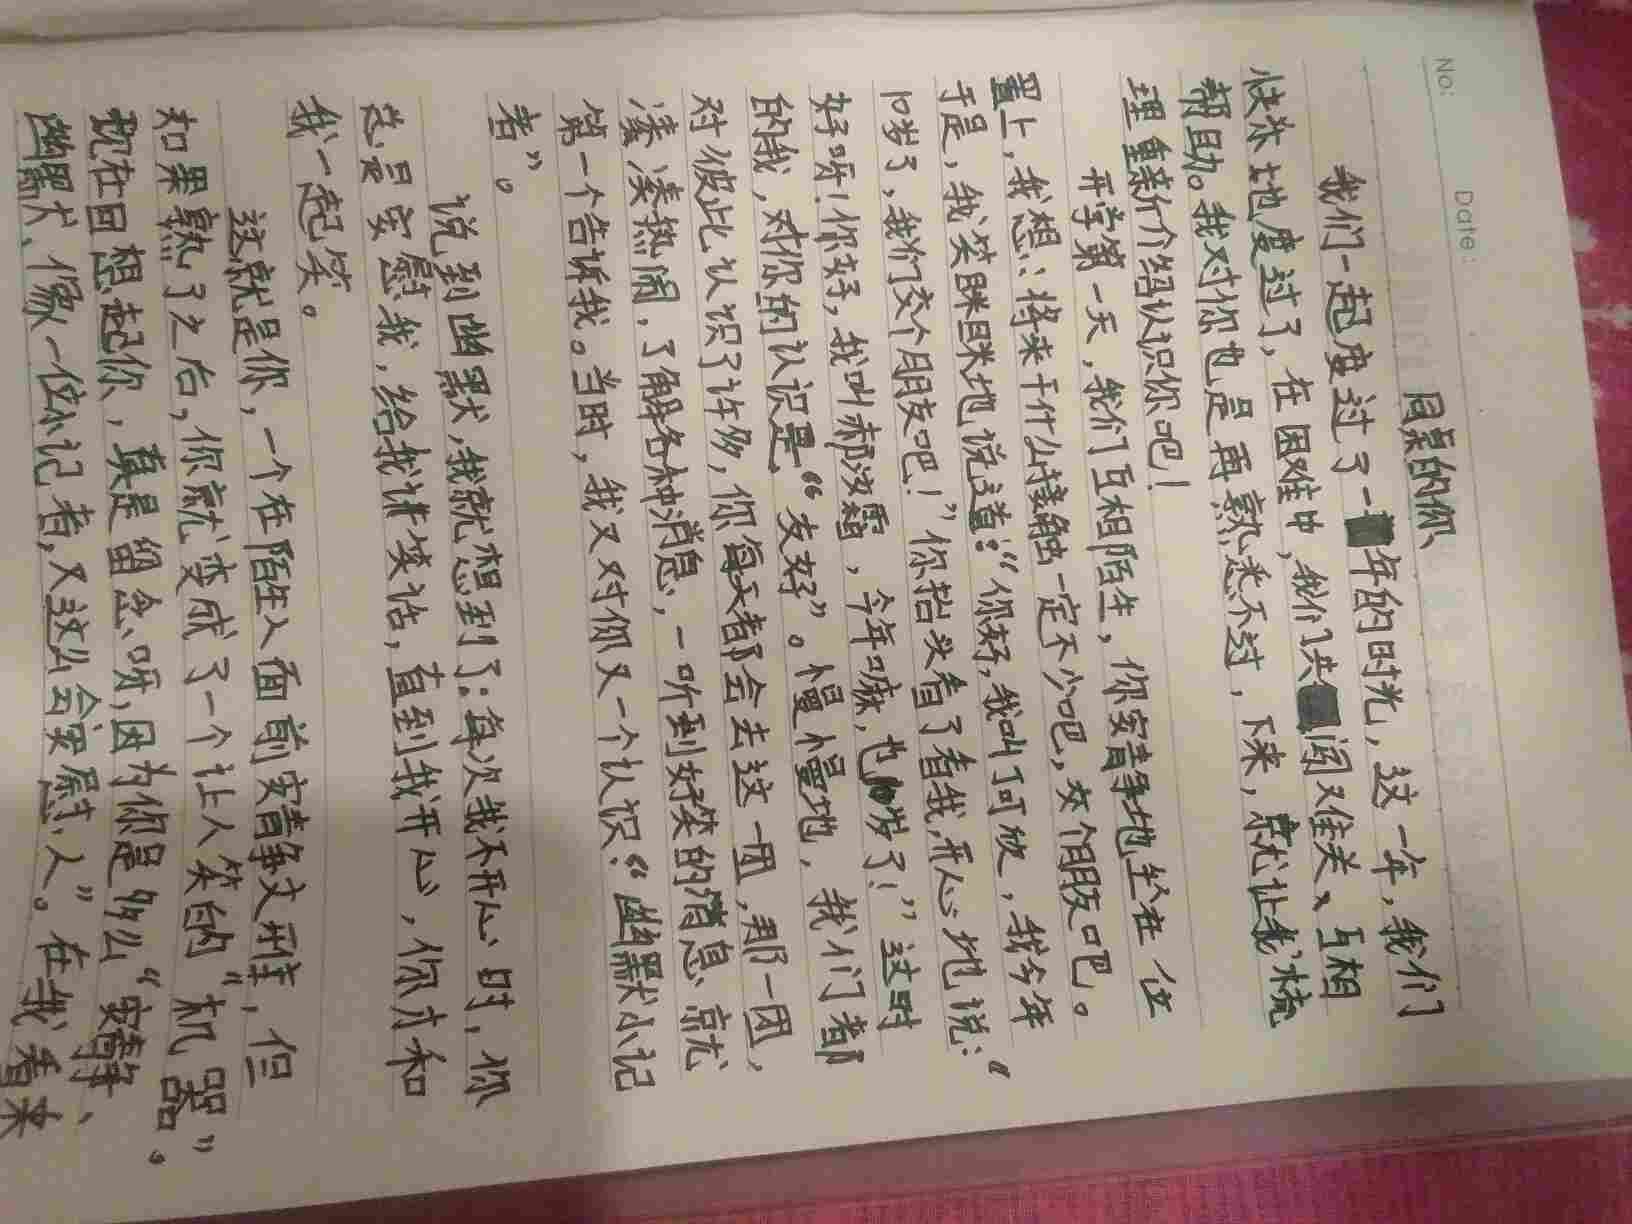 No:
Date:
同桌的你
我们一起度过了一年的时光，这一年，我们
快乐地度过了，在困难中，我们共闯难关、互相
帮助。我对你也是再熟悉不过，下来，就让我梳
理重新介绍认识你吧！
开学第一天，我们互相陌生，你安静地坐在位
置上，我想：将来干什么接触一定不少吧，交个朋友吧。
于是，我笑眯眯地说道：“你好，我叫丁可欣，我今年
10岁了，我们交个朋友吧！”你抬头看了看我，开心地说：“
好呀！你好，我叫郝汝霭，今年嘛，也10岁了！”这时
的我，对你的认识是“友好”。慢慢地，我们都
对彼此认识了许多，你每天都会去这一团，那一团，
凑凑热闹，了解各种消息，一听到好笑的消息就
第一个告诉我。当时，我又对你又一个认识：“幽默小记
者”。
说到幽默，我就想到了：每次我不开心时，你
总是安慰我，给我讲笑话，直到我开心，你才和
我一起笑。
这就是你，一个在陌生人面前安静文雅，但
如果熟了之后，你就变成了一个让人笑的“机器”。
现在回想起你，真是留念呀，因为你是多么“安静、
幽默、像一位小记者，又这么会安慰人”。在我看来